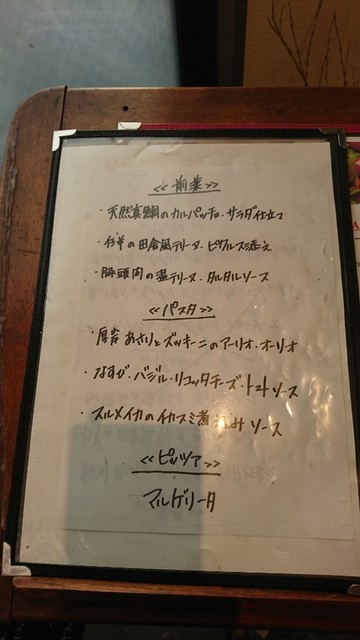 <<前菜>>
・天然真鯛のカルパッチョ・サラダ仕立て
・仔羊の田舎風テリーヌ・ピクルス添え
・豚頭肉の温テリーヌ・タルタルソース
<<パスタ>>
・厚岸あさりとズッキーニのアーリオ・オーリオ
・なすが・バジル・リコッタチーズ・トマトソース
・スルメイカのイカスミ煮込みソース
<<ピッツァ>>
マルゲリータ